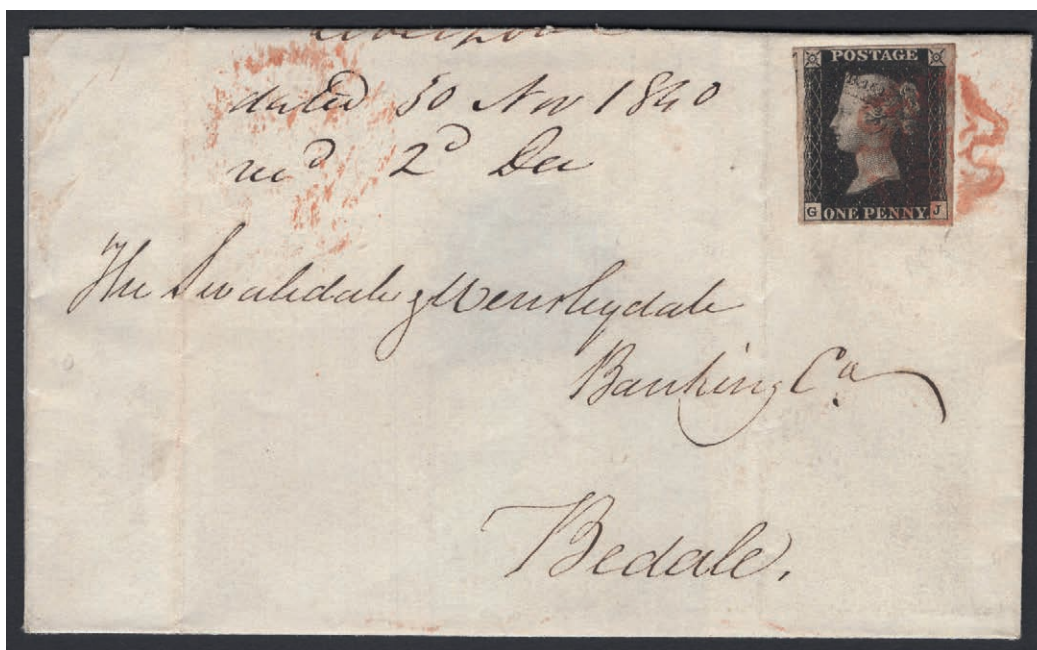 Liverpool
dated 30 Nov 1840
recd 2d Dec
POSTAGE
G ONE PENNY J
The Swaledale & Wensleydale
Banking Co.
Bedale.